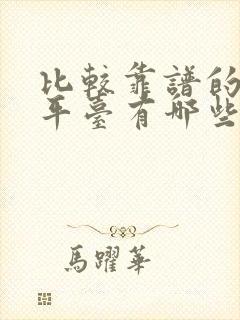 比較靠譜的
平臺有哪些
馬躍華